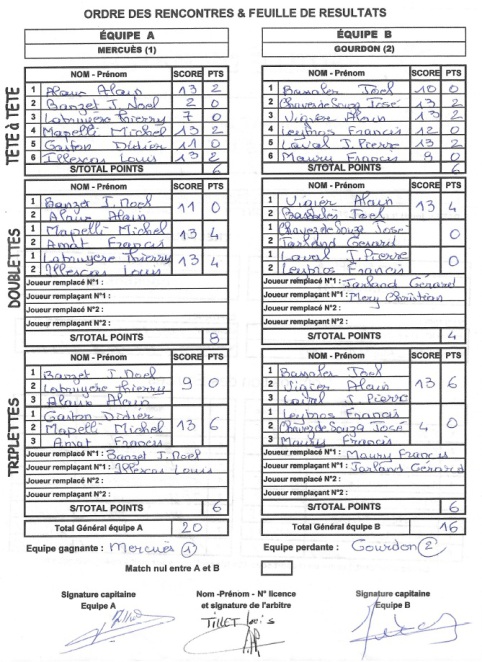 ORDRE DES RENCONTRES & FEUILLE DE RESULTATS
ÉQUIPE A
MERCUÈS (1)
ÉQUIPE B
GOURDON (2)
TÊTE à TÊTE
NOM - Prénom SCORE PTS
1 Alaux Alain 13 2
2 Banzet J. Noel 2 0
3 Labruyère Thierry 7 0
4 Mapelli Michel 13 2
5 Gaston Didier 11 0
6 Illescas Louis 13 2
S/TOTAL POINTS 6
NOM - Prénom SCORE PTS
1 Bassaler Joël 10 0
2 Chavez de Souza José 13 2
3 Vigier Alain 13 2
4 Leybros Francis 12 0
5 Laval J. Pierre 13 2
6 Maury Francis 8 0
S/TOTAL POINTS 6
DOUBLETTES
1 Banzet J. Noel 11 0
2 Alaux Alain
1 Mapelli Michel 13 4
2 Amat Francis
1 Labruyere Thierry 13 4
2 Illescas Louis
Joueur remplacé N°1 :
Joueur remplaçant N°1 :
Joueur remplacé N°2 :
Joueur remplaçant N°2 :
S/TOTAL POINTS 8
1 Vigier Alain 13 4
2 Bassaler Joel
1 Chavez de Souza José 0
2 Tarland Gérard
1 Laval J. Pierre 0
2 Leybros Francis
Joueur remplacé N°1 : Tarland Gérard
Joueur remplaçant N°1 : Mery Christian
Joueur remplacé N°2 :
Joueur remplaçant N°2 :
S/TOTAL POINTS 4
TRIPLETTES
NOM - Prénom SCORE PTS
1 Banzet J. Noel 9 0
2 Labruyere Thierry
3 Alaux Alain
1 Gaston Didier 13 6
2 Mapelli Michel
3 Amat Francis
Joueur remplacé N°1 : Banzet J. Noel
Joueur remplaçant N°1 : Illescas Louis
Joueur remplacé N°2 :
Joueur remplaçant N°2 :
S/TOTAL POINTS 6
NOM - Prénom SCORE PTS
1 Bassaler Joel 13 6
2 Vigier Alain
3 Laval J. Pierre
1 Leybros Francis 4 0
2 Chavez de Souza José
3 Maury Francis
Joueur remplacé N°1 : Maury Francis
Joueur remplaçant N°1 : Tarland Gérard
Joueur remplacé N°2 :
Joueur remplaçant N°2 :
S/TOTAL POINTS 6
Total Général équipe A 20
Total Général équipe B 16
Equipe gagnante : Mercuès 1
Equipe perdante : Gourdon 2
Match nul entre A et B
Signature capitaine
Equipe A
Nom -Prénom - N° licence
et signature de l'arbitre
TILLET
Signature capitaine
Equipe B